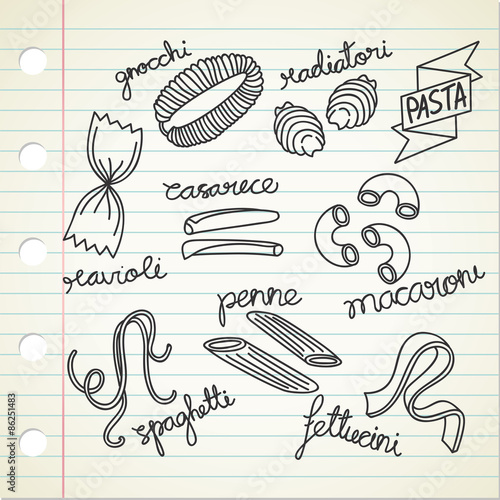 gnocchi
radiatori
PASTA
casarece
ravioli
macaroni
penne
spaghetti
fettucini
Adobe Stock | #86251483